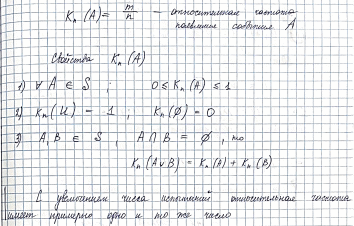 Kₙ(A) = m/n — относительная частота
появления события A
Свойства Kₙ(A)
1) ∀ A ∈ S ; 0 ≤ Kₙ(A) ≤ 1
2) Kₙ(U) = 1 ; Kₙ(∅) = 0
3) A, B ∈ S , A ∩ B = ∅ , то
Kₙ(A ∪ B) = Kₙ(A) + Kₙ(B)
С увеличением числа испытаний относительная частота
имеет примерно одно и то же число